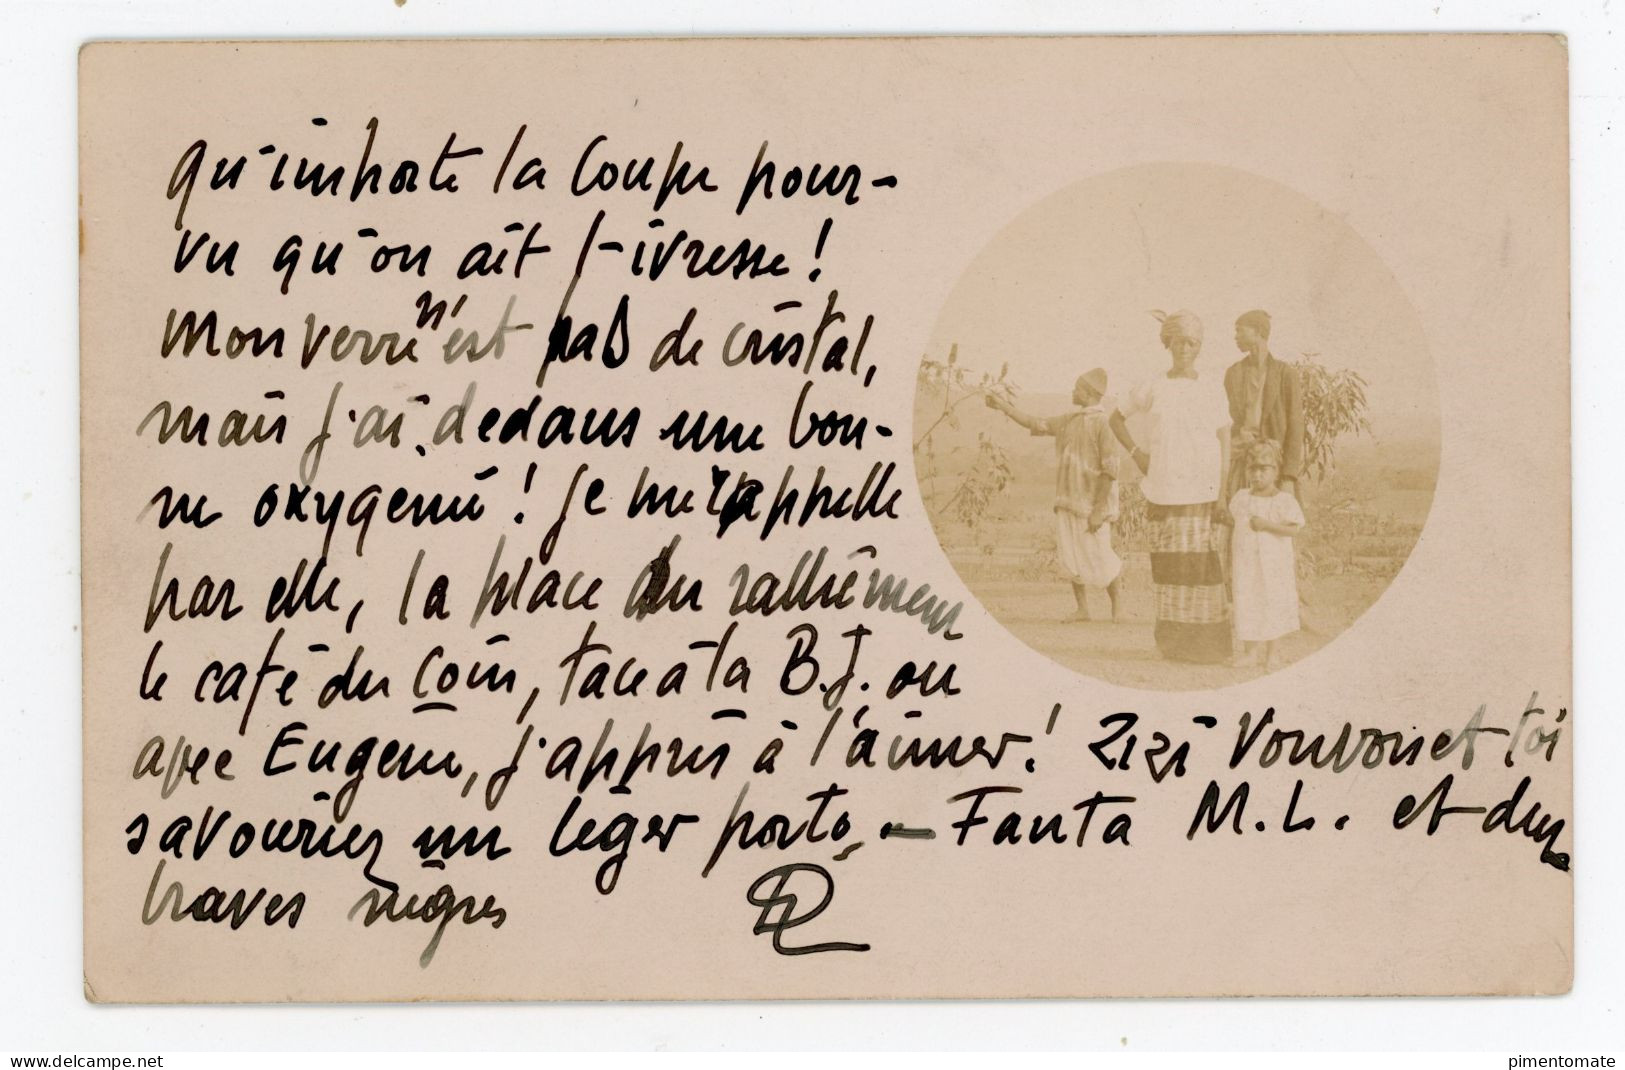 qu'importe la Coupe pour-
vu qu'on ait l'ivresse!
Mon verre n'est pas de cristal,
mais j'ai dedans une bon-
ne oxygenée! Je me rappelle
par elle, la place du ralliement
le café du Coin, face à la B.J. où
avec Eugene, j'appris à l'aimer! Zizi Vonvon et toi
savouriez un léger porto, - Fanta M.L. et deux
braves nègres
www.delcampe.net
pimentomate